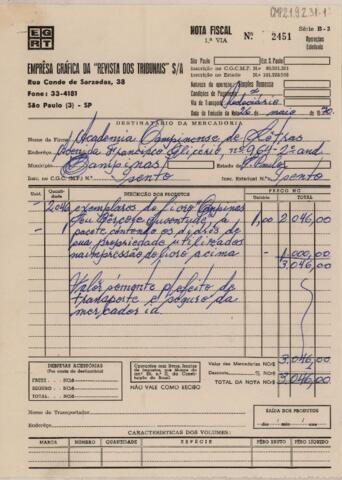 CMP2.1.9.231-1
EGRT
EMPRÊSA GRÁFICA DA "REVISTA DOS TRIBUNAIS" S/A
Rua Conde de Sarzedas, 38
Fone: 33-4181
São Paulo (3) - SP
NOTA FISCAL
1.ª VIA Nº 2451
Série B-3
Operações
Estaduais
São Paulo Est. S. Paulo
Inscrição no C.G.C.M.F. No.
Inscrição no Estado No.
Natureza da operação: Simples Remessa
Condições de Pagamento
Via de Transporte Rodoviário
Data da Emissão da Nota 26 maio 1970
DESTINATÁRIO DA MERCADORIA
Nome da Firma: Academia Campinense de Letras
Enderêço: Avenida Francisco Glicério, nº 964-2º and
Município: Campinas Estado S. Paulo
Insc. no C.G.C.M.F. Nº Isento Isento
Unid. Quantidade DESCRIÇÃO DOS PRODUTOS PREÇO NC$ TOTAL
2.046 exemplares do livro Campinas
Seu Berço e Juventude à 1,00 2.046,00
1 pacote contendo os clichês de
sua propriedade utilizados
na impressão do livro acima 1.000,00
3.046,00
Valor sòmente p/efeito de
transporte e seguro da
mercadoria.
DESPESAS ACESSÓRIAS
(Por conta do destinatário)
FRETE NC$
SEGURO NC$
TOTAL NC$
NÃO VALE COMO RECIBO
Valor das Mercadorias NC$ 3.046,00
Desconto % NC$
TOTAL DA NOTA NC$ 3.046,00
Nome do Transportador
Enderêço:
SAÍDA DOS PRODUTOS
dia / mês / ano
CARACTERÍSTICAS DOS VOLUMES:
MARCA NÚMERO QUANTIDADE ESPÉCIE PÊSO BRUTO PÊSO LÍQUIDO